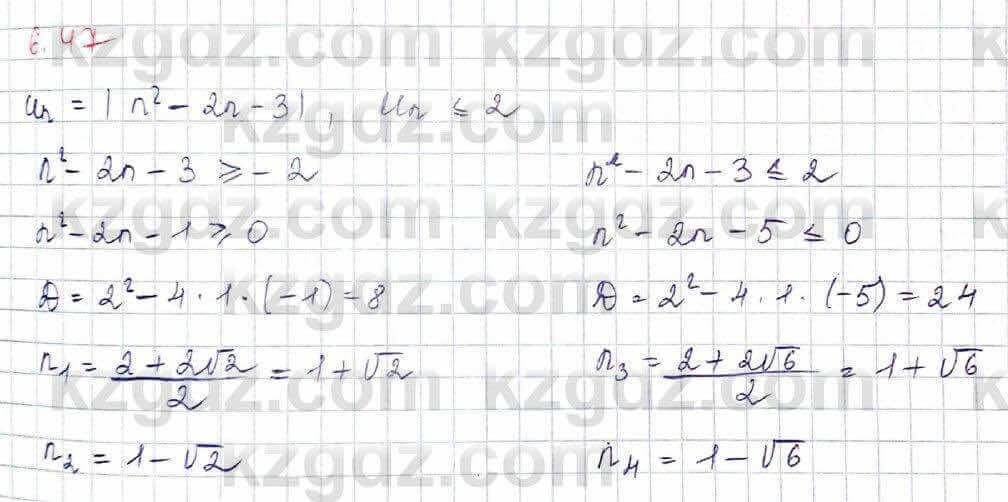 6.47
uₙ = |n² - 2n - 3|, uₙ ≤ 2
n² - 2n - 3 ≥ - 2
n² - 2n - 1 ≥ 0
D = 2² - 4 · 1 · (-1) = 8
n₁ = (2 + 2√2)/2 = 1 + √2
n₂ = 1 - √2
n² - 2n - 3 ≤ 2
n² - 2n - 5 ≤ 0
D = 2² - 4 · 1 · (-5) = 24
n₃ = (2 + 2√6)/2 = 1 + √6
n₄ = 1 - √6
kzgdz.com
kzgdz.com
kzgdz.com
kzgdz.com
kzgdz.com
kzgdz.com
kzgdz.com